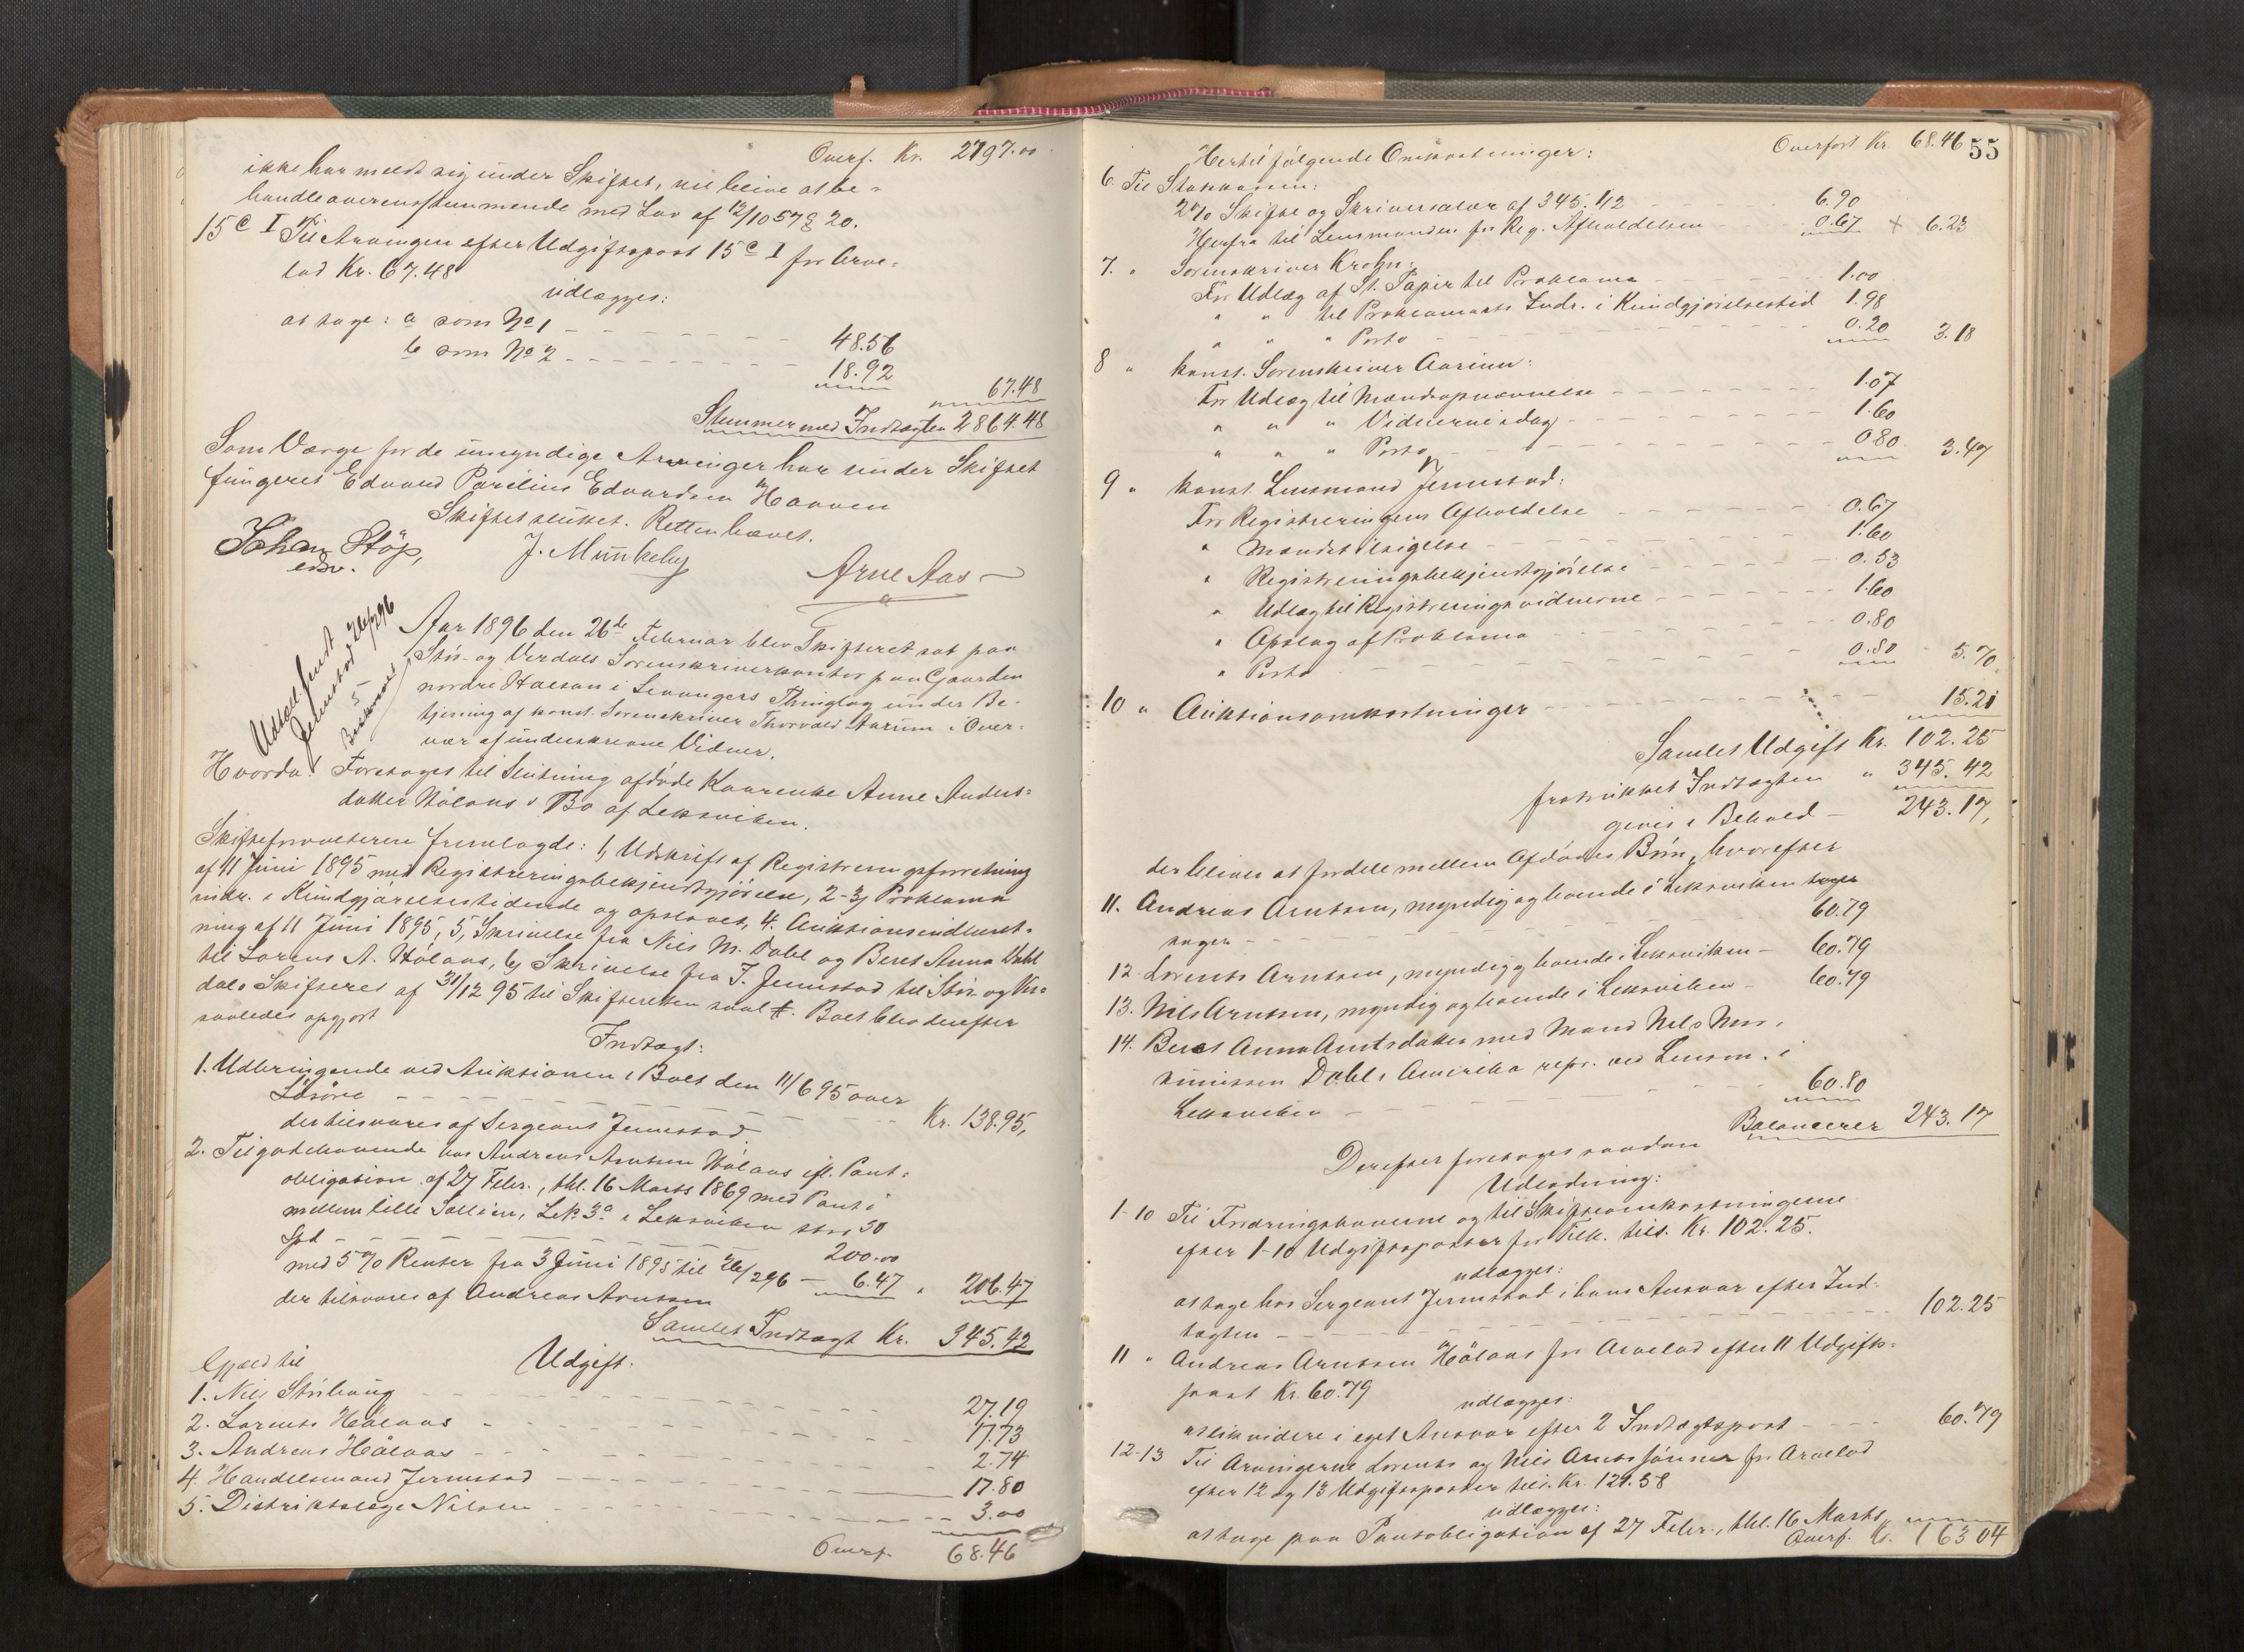 Overf. Kr. 2797.00
ikke har meldt sig under Skiftet, vil blive at be-
handle overensstemmende med Lov af 12/10 57 § 20.
15 c I Til Arvingen efter Udgiftspost 15 c I for Arve-
lod Kr. 67.48
udlægges:
at tage: a som No 1 48.56
b som No 2 18.92 67.48
Stemmer med Indtægten 2864.48
Som Værge for de umyndige Arvinger har under Skiftet
fungeret Edvard Parelius Edvardsen Haaven
Skiftet sluttet. Retten hævet.
Johan Støp, J. Munkeby Arne Aas
edsv.
Udskrift sendt
Jermstad 26/2 96
5
Aar 1896 den 26de Februar blev Skifteret sat paa
Stør- og Verdals Sorenskriverkontor paa Gaarden
nordre Halsan i Levangers Thinglag under Be-
tjening af konst. Sorenskriver Thorvald Aarum i Over-
vær af underskrevne Vidner.
Hvorda: Foretoges til Slutning afdøde Kaarenke Anne Anders-
datter Hölaas's Bo af Leksviken.
Skifteforvalteren fremlagde: 1, Udskrift af Registreringsforretning
af 11 Juni 1895 med Registreringsbekjendtgjörelse, 2-3, Proklama
indr. i Kundgjörelsestidende og opslaaet, 4. Auktionsindberet-
ning af 11 Juni 1895, 5, Skrivelse fra Nils M. Dahl og Beret Anna Dahl
til Lorens A. Hölaas, 6, Skrivelse fra J. Jermstad til Stör- og Ver-
dals Skifteret af 31/12 95 til Skifteretten saal. Boet blev derefter
saaledes opgjort
Indtægt:
1. Udbringende ved Auktionen i Boet den 11/6 95 over
Lösöre Kr. 138.95,
der tilsvares af Sergeant Jermstad
2. Tilgodehavende hos Andreas Arntsen Hölaas ifl. Pant-
obligation af 27 Febr., thl. 16 Marts 1869 med Pant i
mellem lille Sollien, L.No 3a i Leksviken stor 50
Spd 200.00
med 5% Renter fra 3 Juni 1895 til 26/2 96 6.47 " 206.47
der tilsvares af Andreas Arntsen
Samlet Indtægt Kr. 345.42
Udgift:
Gjæld til
1. Nils Störhaug 27.19
2. Lorents Hölaas 17.73
3. Andreas Hölaas 2.74
4. Handelsmand Jermstad 17.80
5. Distriktslæge Nilsen 3.00
Overf. 68.46
Overfört Kr. 68.46 55
Hertil følgende Omkostninger:
6. Til Statskassen:
2% Skifte og Skriversalær af 345.42 6.90
Herfra til Lensmanden for Reg. Afholdelsen 0.67 + 6.23
7. " Sorenskriver Krohn:
For Udlæg af St. Papir til Proklama 1.00
" " til Proklamaets Indr. i Kundgjörelsestid 1.98
" " " Porto 0.20 3.18
8 " konst. Sorenskriver Aarum:
For Udlæg til Mændsopnævnelse 1.07
" " " Vidnerne idag 1.60
" " " Porto 0.80 3.47
9 " konst. Lensmand Jermstad:
For Registreringens Afholdelse 0.67
" Mændstilsigelse 1.60
" Registreringsbekjendtgjörelse 0.53
" Udlæg til Registreringsvidnerne 1.60
" Opslag af Proklama 0.80
" Porto 0.50 5.70
10 " Auktionsomkostninger 15.21
Samlet Udgift Kr. 102.25
fratrukket Indtægten " 345.42
gives i Behold 243.17,
der bliver at fordele mellem Afdödes Börn, hvorefter
11. Andreas Arntsen, myndig og boende i Leksviken tager
tager 60.79
12. Lorents Arntsen, myndig og boende i Leksviken 60.79
13. Nils Arntsen, myndig og boende i Leksviken 60.79
14. Beret Anna Arntsdatter med Mand Nils
Dahl i Amerika repr. ved Lensm. i
Leksviken 60.80
Balancerer 243.17
Derefter foretoges saadan
Udlodning:
1-10 Til Fordringshaverne og til Skifteomkostningerne
efter 1-10 Udgiftsposter for Tilk. tils. Kr. 102.25.
udlægges:
at tage hos Sergeant Jermstad i hans Ansvar efter Ind-
tægten 102.25
11 " Andreas Arntsen Hölaas for Arvelod efter 11 Udgifts-
post Kr. 60.79
udlægges:
at likvidere i eget Ansvar efter 2 Indtægtspost 60.79
12-13 Til Arvingerne Lorents og Nils Arnts Sönner for Arvelod
efter 12 og 13 Udgiftsposter tils. Kr. 121.58
udlægges:
at tage paa Pantobligation af 27 Febr., thl. 16 Marts
Overf. Kr. 163 04